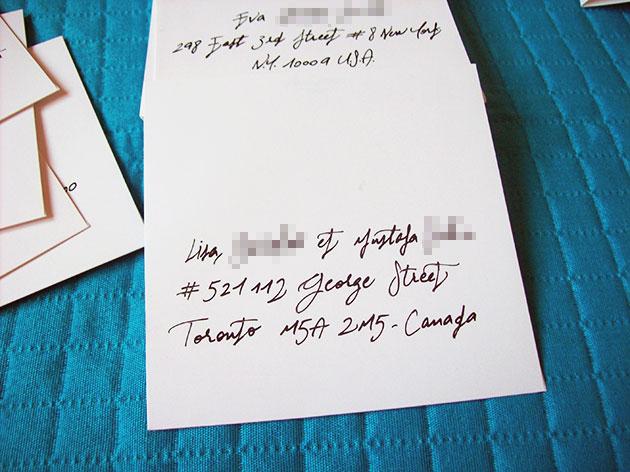 Eva
298 East 3rd Street # 8 New York
N.Y. 10009 U.S.A.
Lisa et Mustafa
# 521 112 George Street
Toronto M5A 2M5 - Canada